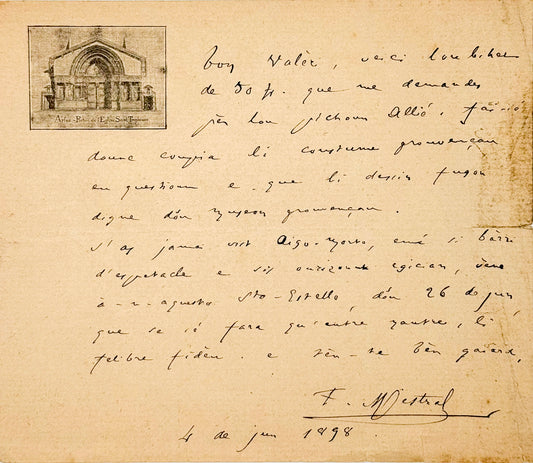 Arles - Portail de l'Eglise Saint Trophime
bon Valèr, veici lou bihet
de 50 fr. que me demandes
pèr lou pichoun Allié. fai-ié
dounc coupia li coustume prouvençau
en questioun e que li dessin fugon
digne dóu museon prouvençau.
S'as jamai vist Aigo-Morto, emé si bàrri
d'espetacle e sis ourizount egician, vène
à-n-aquesto Sto-Estello, dóu 26 de jun,
que se ié fara qu'entre nautre, li
felibre fidèu. e tèn-te bèn gaiard,
F. Mistral
4 de jun 1898.